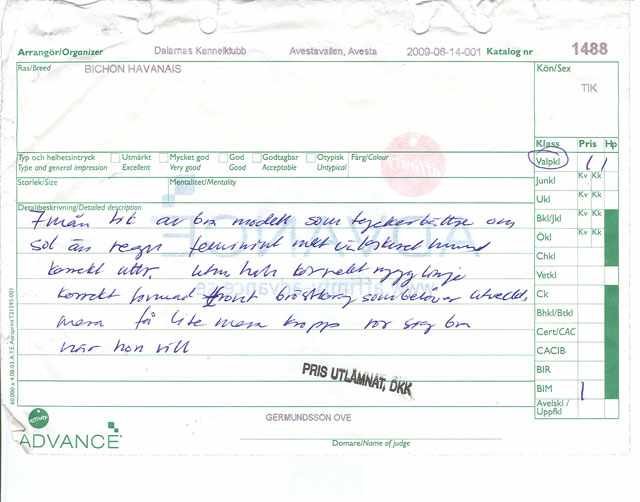 Arrangör/Organizer Dalarnas Kennelklubb Avestavallen, Avesta 2009-06-14-001 Katalog nr 1488
Ras/Breed BICHON HAVANAIS
Kön/Sex
TIK
Klass Pris Hp
Typ och helhetsintryck Utmärkt Mycket god God Godtagbar Otypisk Färg/Colour
Type and general impression Excellent Very good Good Acceptable Untypical
Valpkl 1
Storlek/Size Mentalitet/Mentality
Kv Kk
Junkl
Kv Kk
Ukl
Kv Kk
Bkl/Jkl
Kv Kk
Ökl
Chkl
Vetkl
Ck
Bhkl/Btkl
Cert/CAC
CACIB
BIR
BIM 1
Avelskl /
Uppfkl
Detaljbeskrivning/Detailed description
7 mån tik av bra modell som tycker bättre om
sol än regn feminint huvud
korrekt uttr. korrekt rygglinje
korrekt front bröstkorg som behöver utvecklas
mera få lite mera kropp rör sig bra
när hon vill
PRIS UTLÄMNAT, DKK
GERMUNDSSON OVE
Domare/Name of judge
affinity
ADVANCE
ADVANCE
affinity